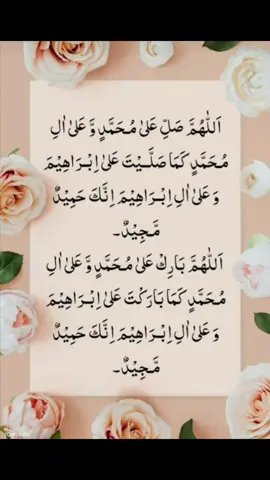 اَللّٰهُمَّ صَلِّ عَلٰى مُحَمَّدٍ وَّ عَلٰى اٰلِ
مُحَمَّدٍ كَمَا صَلَّيْتَ عَلٰى اِبْرَاهِيْمَ
وَ عَلٰى اٰلِ اِبْرَاهِيْمَ اِنَّكَ حَمِيْدٌ
مَّجِيْدٌ۔
اَللّٰهُمَّ بَارِكْ عَلٰى مُحَمَّدٍ وَّ عَلٰى اٰلِ
مُحَمَّدٍ كَمَا بَارَكْتَ عَلٰى اِبْرَاهِيْمَ
وَ عَلٰى اٰلِ اِبْرَاهِيْمَ اِنَّكَ حَمِيْدٌ
مَّجِيْدٌ۔